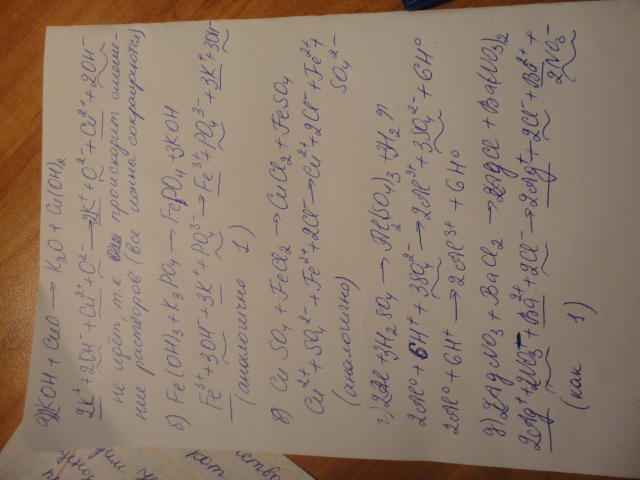 а) 2KOH + CuO → K₂O + Cu(OH)₂
2K⁺ + 2OH⁻ + Cu²⁺ + O²⁻ → 2K⁺ + O²⁻ + Cu²⁺ + 2OH⁻
не идёт т.к. происходит смеше-
ние растворов (все ионы сокращаются)
б) Fe(OH)₃ + K₃PO₄ → FePO₄ + 3KOH
Fe³⁺ + 3OH⁻ + 3K⁺ + PO₄³⁻ → Fe³⁺ + PO₄³⁻ + 3K⁺ + 3OH⁻
(аналогично 1)
в) CuSO₄ + FeCl₂ → CuCl₂ + FeSO₄
Cu²⁺ + SO₄²⁻ + Fe²⁺ + 2Cl⁻ → Cu²⁺ + 2Cl⁻ + Fe²⁺ +
SO₄²⁻
(аналогично)
г) 2Al + 3H₂SO₄ → Al₂(SO₄)₃ + 3H₂↑
2Al⁰ + 6H⁺ + 3SO₄²⁻ → 2Al³⁺ + 3SO₄²⁻ + 6H⁰
2Al⁰ + 6H⁺ → 2Al³⁺ + 6H⁰
д) 2AgNO₃ + BaCl₂ → 2AgCl + Ba(NO₃)₂
2Ag⁺ + 2NO₃⁻ + Ba²⁺ + 2Cl⁻ → 2Ag⁺ + 2Cl⁻ + Ba²⁺ +
2NO₃⁻
(как 1)